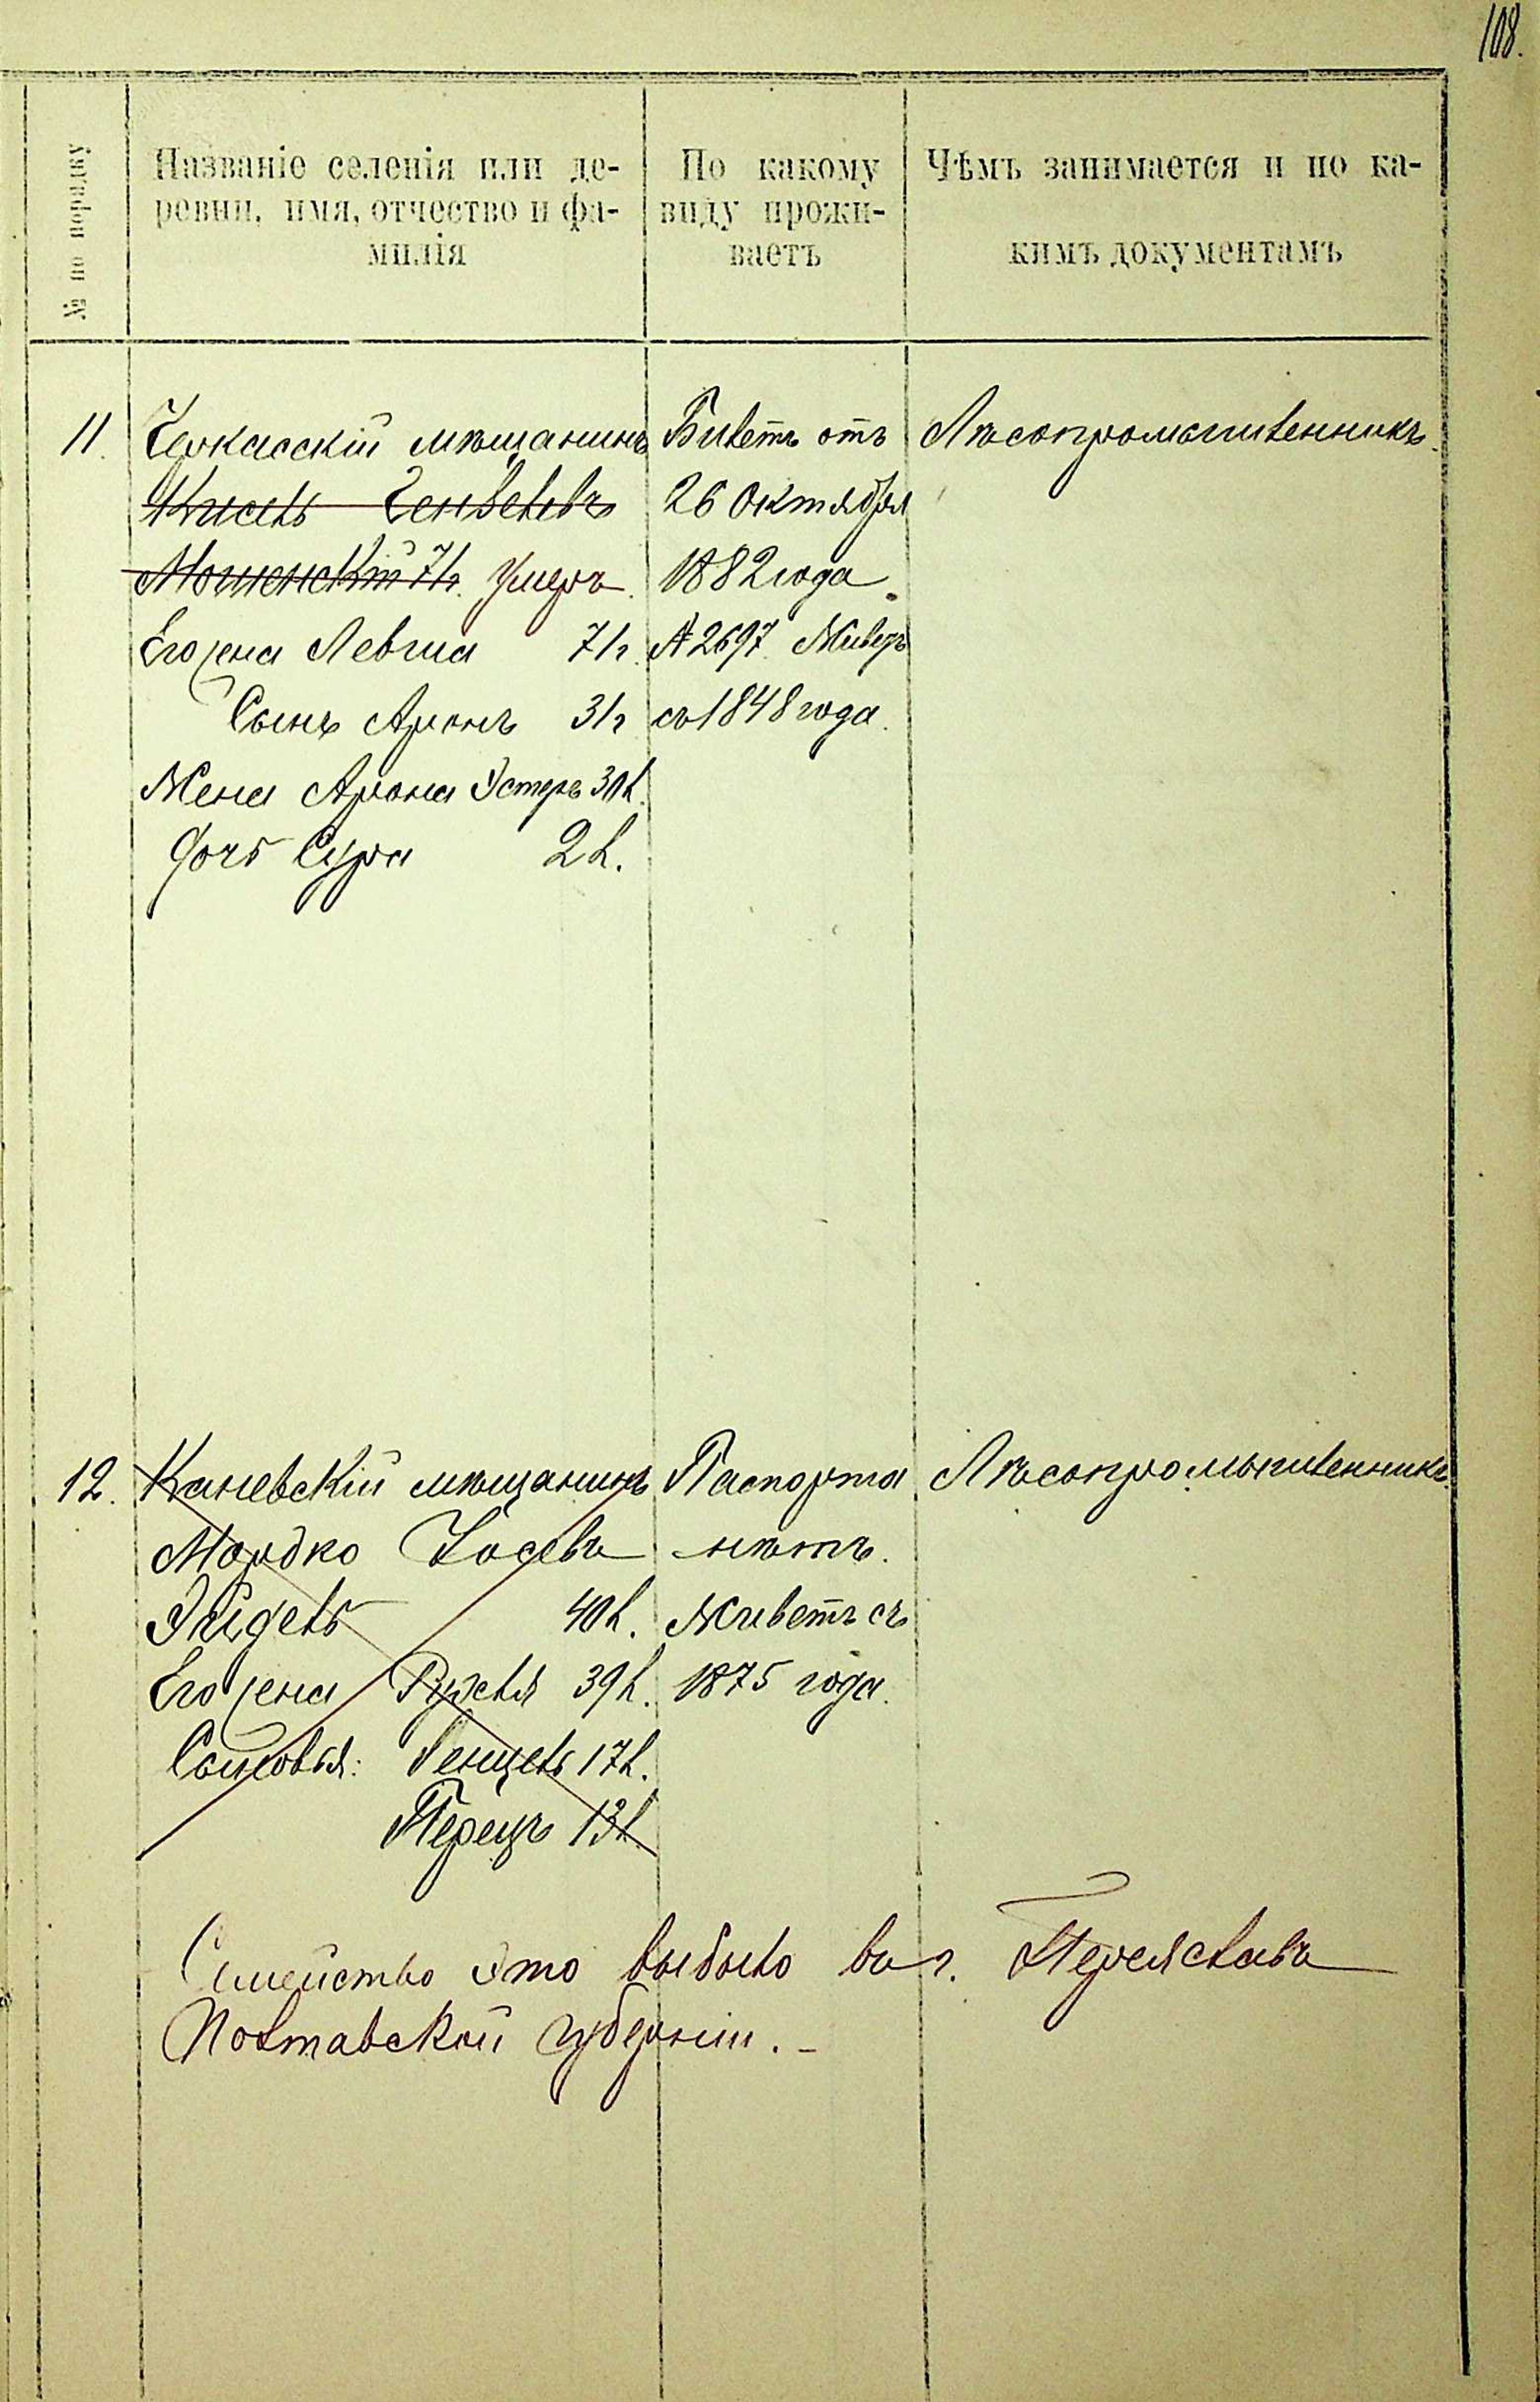 108.
№ по порядку
Названіе селенія или де-
ревни, имя, отчество и фа-
милія
По какому
виду прожи-
ваетъ
Чѣмъ занимается и по ка-
кимъ документамъ
11.
Черкасскій мѣщанинъ
71г. умеръ.
Его жена 71г.
Сынъ Аронъ 31г
Жена Арона Эстеръ 30л.
Дочь Сура 2л.
Билетъ отъ
26 Октября
1882 года.
№2697. Живетъ
съ 1848 года.
Лѣсопромышленникъ.
12.
Каневскій мѣщанинъ
Мордко Іосевъ
Эйдель 40л.
Его жена 39л.
Сыновья: 17л.
Перецъ 13л.
Паспорта
нѣтъ.
Живетъ съ
1875 года.
Лѣсопромышленникъ.
Семейство это выбыло въ г. Переяславъ
Полтавской губерніи. -